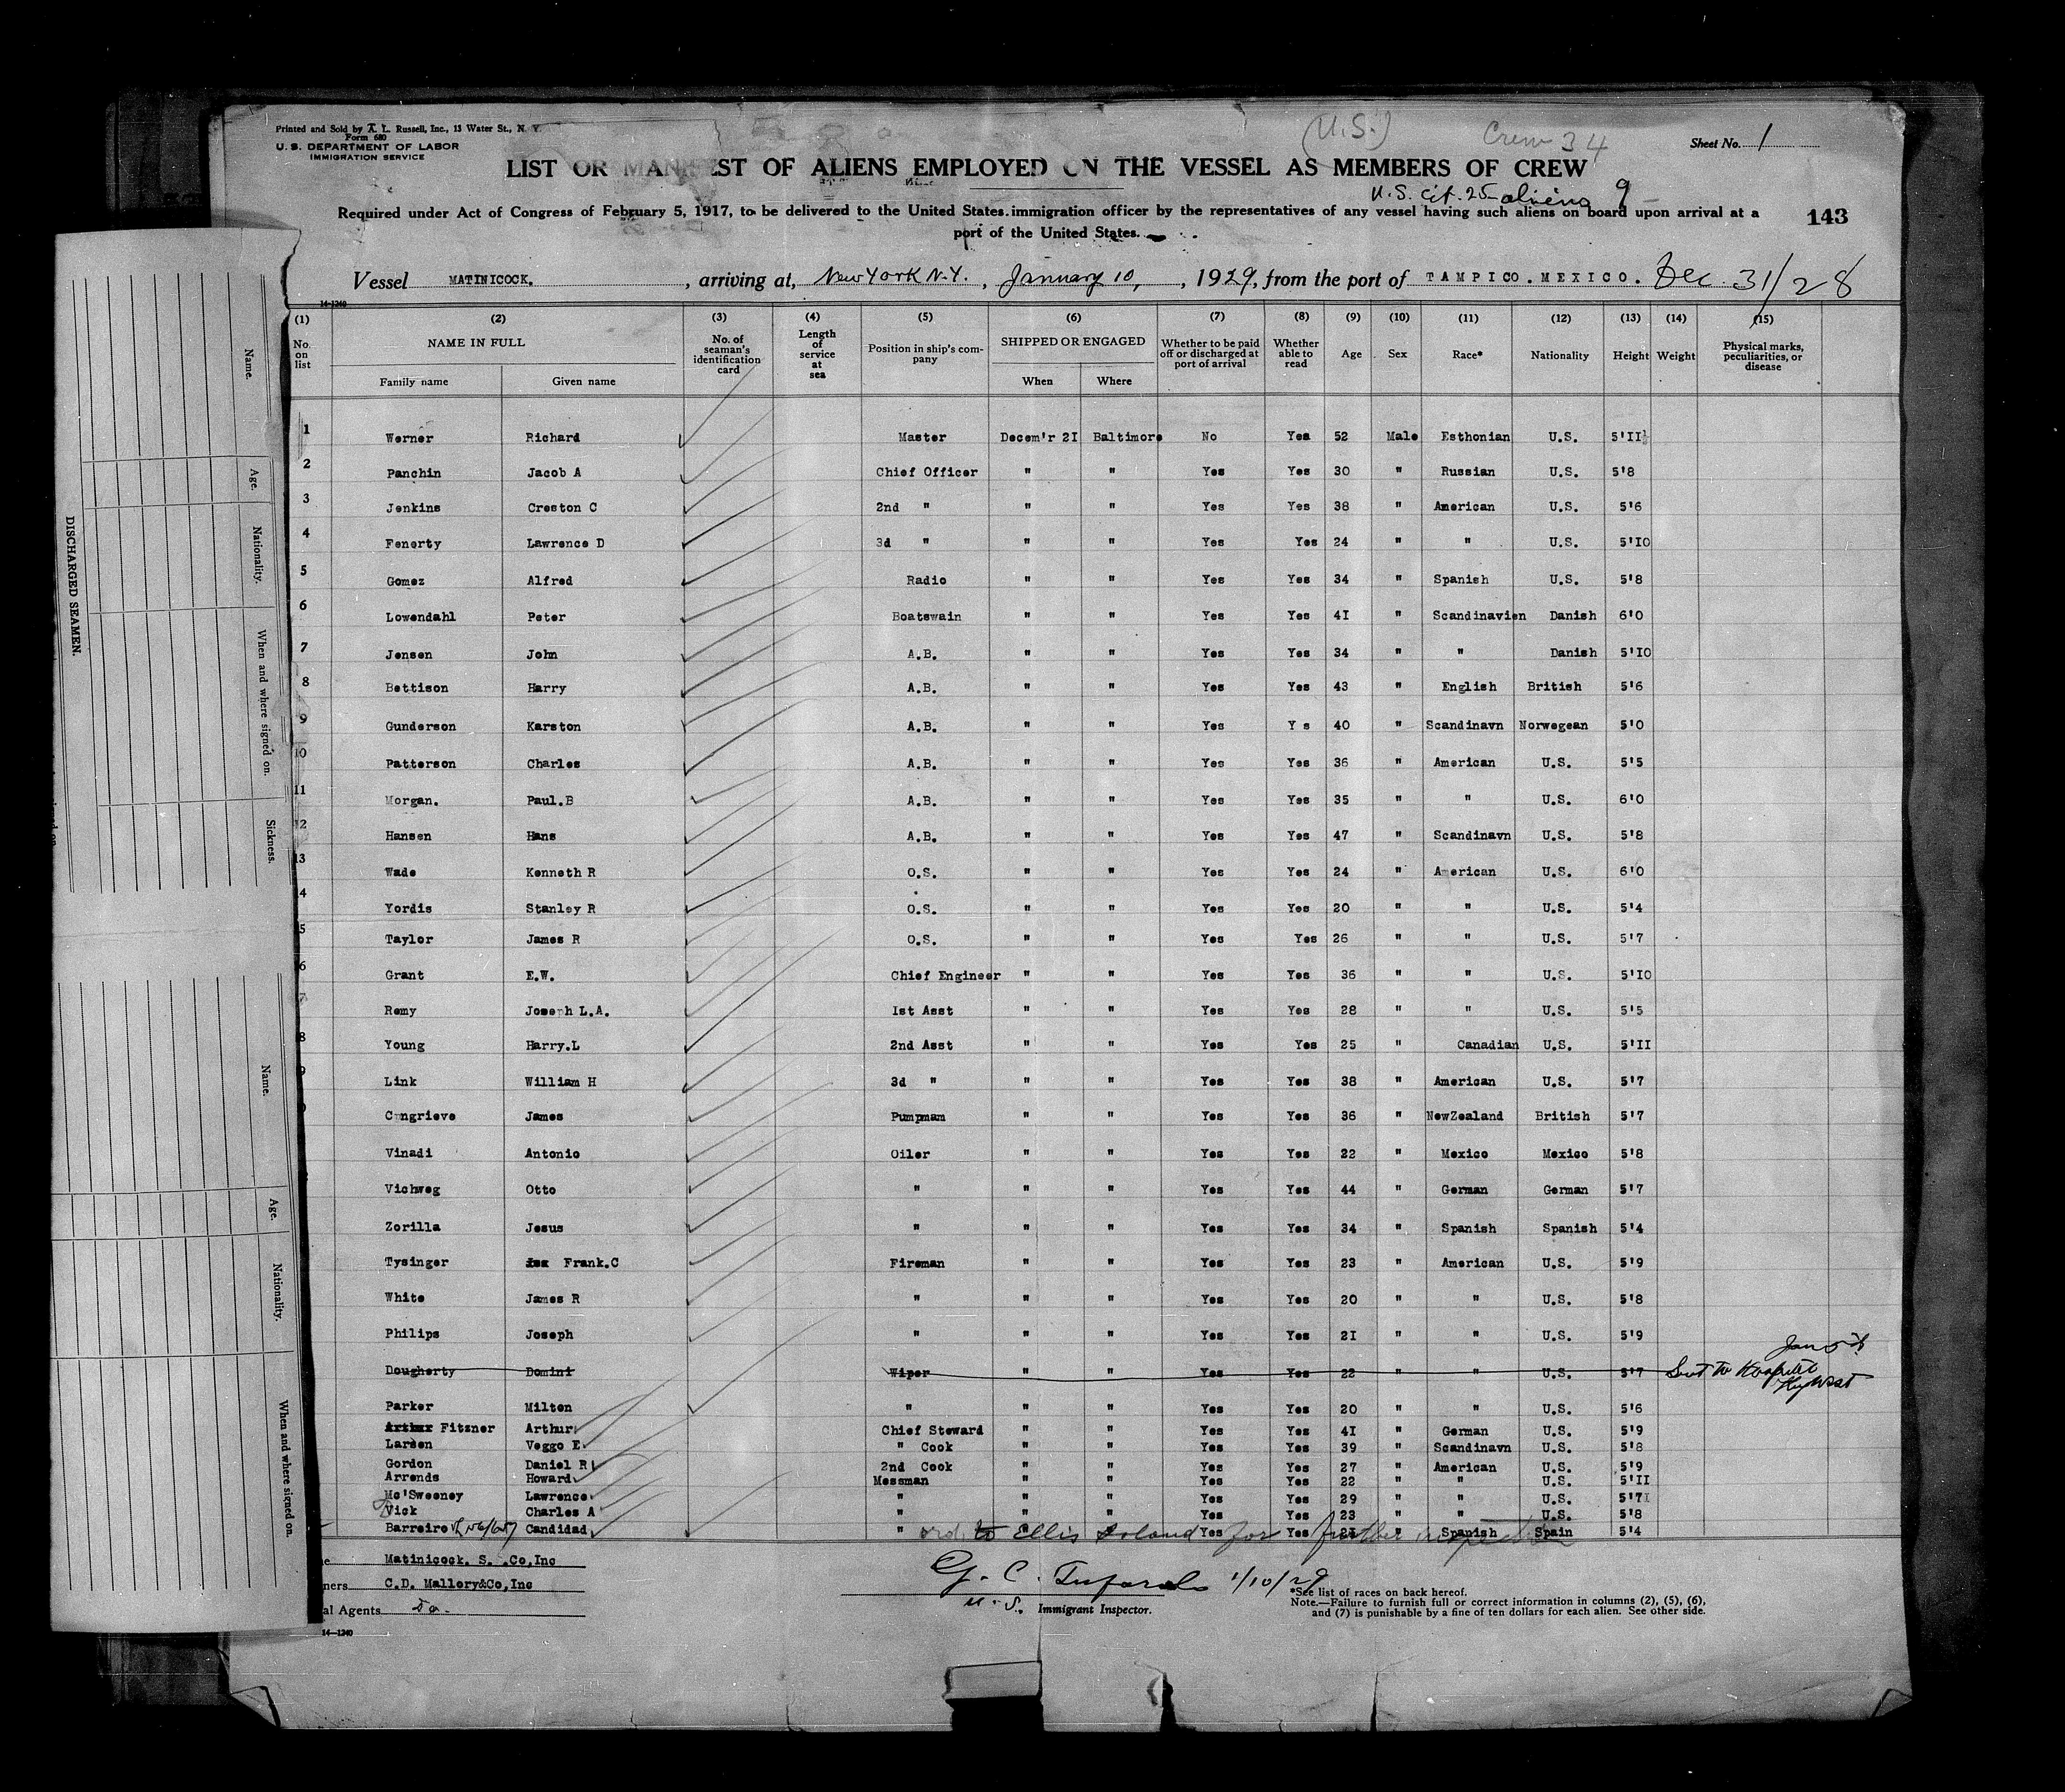 Printed and Sold by A. L. Russell, Inc., 13 Water St., N. Y.
Form 680
U. S. DEPARTMENT OF LABOR
IMMIGRATION SERVICE
(U.S.)
Crew 34
Sheet No. 1
LIST OR MANIFEST OF ALIENS EMPLOYED ON THE VESSEL AS MEMBERS OF CREW
U.S. cit. 25 - aliens 9 -
Required under Act of Congress of February 5, 1917, to be delivered to the United States immigration officer by the representatives of any vessel having such aliens on board upon arrival at a
port of the United States.
143
Vessel MATINICOCK. , arriving at, New York N.Y. , January 10, , 1929, from the port of TAMPICO. MEXICO. Dec. 31/28
14-1240
(1) (2) (3) (4) (5) (6) (7) (8) (9) (10) (11) (12) (13) (14) (15)
No. on list NAME IN FULL No. of seaman's identification card Length of service at sea Position in ship's company SHIPPED OR ENGAGED Whether to be paid off or discharged at port of arrival Whether able to read Age Sex Race* Nationality Height Weight Physical marks, peculiarities, or disease
Family name Given name When Where
1 Werner Richard Master Decem'r 2I Baltimore No Yes 52 Male Esthonian U.S. 5'II½
2 Panchin Jacob A Chief Officer " " Yes Yes 30 " Russian U.S. 5'8
3 Jenkins Creston C 2nd " " " Yes Yes 38 " American U.S. 5'6
4 Fenerty Lawrence D 3d " " " Yes Yes 24 " " U.S. 5'IO
5 Gomez Alfred Radio " " Yes Yes 34 " Spanish U.S. 5'8
6 Lowendahl Peter Boatswain " " Yes Yes 4I " Scandinavien Danish 6'0
7 Jensen John A.B. " " Yes Yes 34 " " Danish 5'IO
8 Bettison Harry A.B. " " Yes Yes 43 " English British 5'6
9 Gunderson Karston A.B. " " Yes Y s 40 " Scandinavn Norwegean 5'0
10 Patterson Charles A.B. " " Yes Yes 36 " American U.S. 5'5
11 Morgan. Paul.B A.B. " " Yes Yes 35 " " U.S. 6'0
12 Hansen Hans A.B. " " Yes Yes 47 " Scandinavn U.S. 5'8
13 Wade Kenneth R O.S. " " Yes Yes 24 " American U.S. 6'0
4 Yordis Stanley R O.S. " " Yes Yes 20 " " U.S. 5'4
5 Taylor James R O.S. " " Yes Yes 26 " " U.S. 5'7
6 Grant E.W. Chief Engineer " " Yes Yes 36 " " U.S. 5'IO
7 Remy Joseph L.A. Ist Asst " " Yes Yes 28 " " U.S. 5'5
8 Young Harry.L 2nd Asst " " Yes Yes 25 " Canadian U.S. 5'II
9 Link William H 3d " " " Yes Yes 38 " American U.S. 5'7
Congrieve James Pumpmam " " Yes Yes 36 " NewZealand British 5'7
Vinadi Antonio Oiler " " Yes Yes 22 " Mexico Mexico 5'8
Vichweg Otto " " " Yes Yes 44 " German German 5'7
Zorilla Jesus " " " Yes Yes 34 " Spanish Spanish 5'4
Tysinger Frank.C Fireman " " Yes Yes 23 " American U.S. 5'9
White James R " " " Yes Yes 20 " " U.S. 5'8
Philips Joseph " " " Yes Yes 2I " " U.S. 5'9
Jan 5th
Dougherty Domini Wiper " " Yes Yes 22 " " U.S. 5'7 Sent to Hospital
Key West
Parker Milton " " " Yes Yes 20 " " U.S. 5'6
Arthur Fitzner Arthur Chief Steward " " Yes Yes 4I " German U.S. 5'9
Larsen Veggo E " Cook " " Yes Yes 39 " Scandinavn U.S. 5'8
Gordon Daniel R 2nd Cook " " Yes Yes 27 " American U.S. 5'9
Arrends Howard Messman " " Yes Yes 22 " " U.S. 5'II
Mc'Sweeney Lawrence " " " Yes Yes 29 " " U.S. 5'7
Vick Charles A " " " Yes Yes 23 " " U.S. 5'8
Barreiro Candidad " " " Yes Yes 2I " Spanish Spain 5'4
ord. to Ellis Island for further inspection
Matinicock. S. .Co,Inc
ners C.D. Mallory&Co,Inc
al Agents do.
14—1240
1/10/29
U.S. Immigrant Inspector.
*See list of races on back hereof.
Note.—Failure to furnish full or correct information in columns (2), (5), (6),
and (7) is punishable by a fine of ten dollars for each alien. See other side.
DISCHARGED SEAMEN.
Name.
Age.
Nationality.
When and where signed on.
Sickness.
Name.
Age.
Nationality.
When and where signed on.